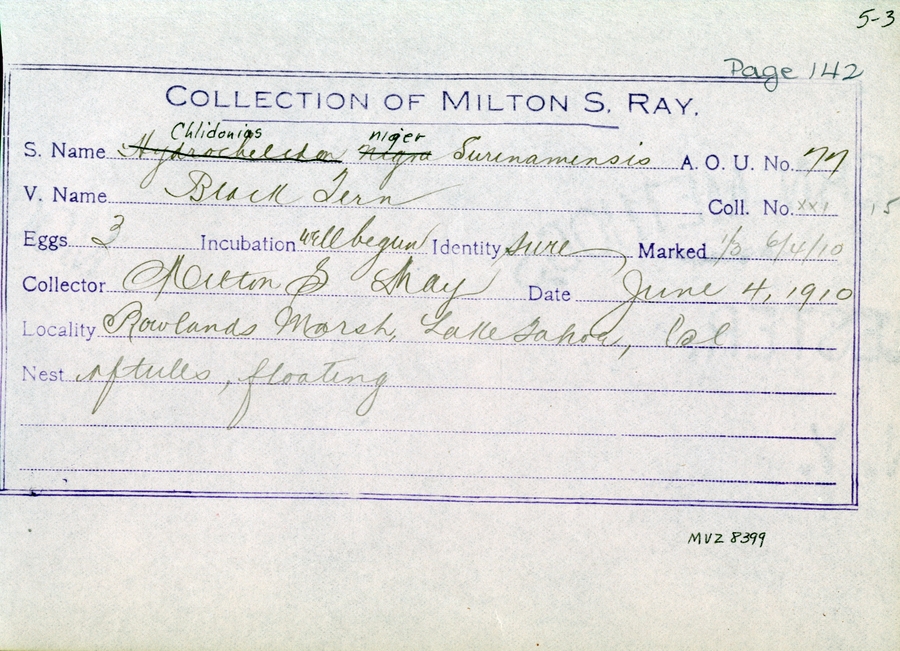 5-3
Page 142
COLLECTION OF MILTON S. RAY.
Chlidonias niger
S. Name Hydrochelidon nigra Surinamensis A. O. U. No. 77
V. Name Black Tern Coll. No. XXI 15
Eggs 3 Incubation well begun Identity sure Marked 1/3 6/4/10
Collector Milton S Ray Date June 4, 1910
Locality Rowlands Marsh, Lake Tahoe, Cal
Nest of tules, floating
MVZ 8399